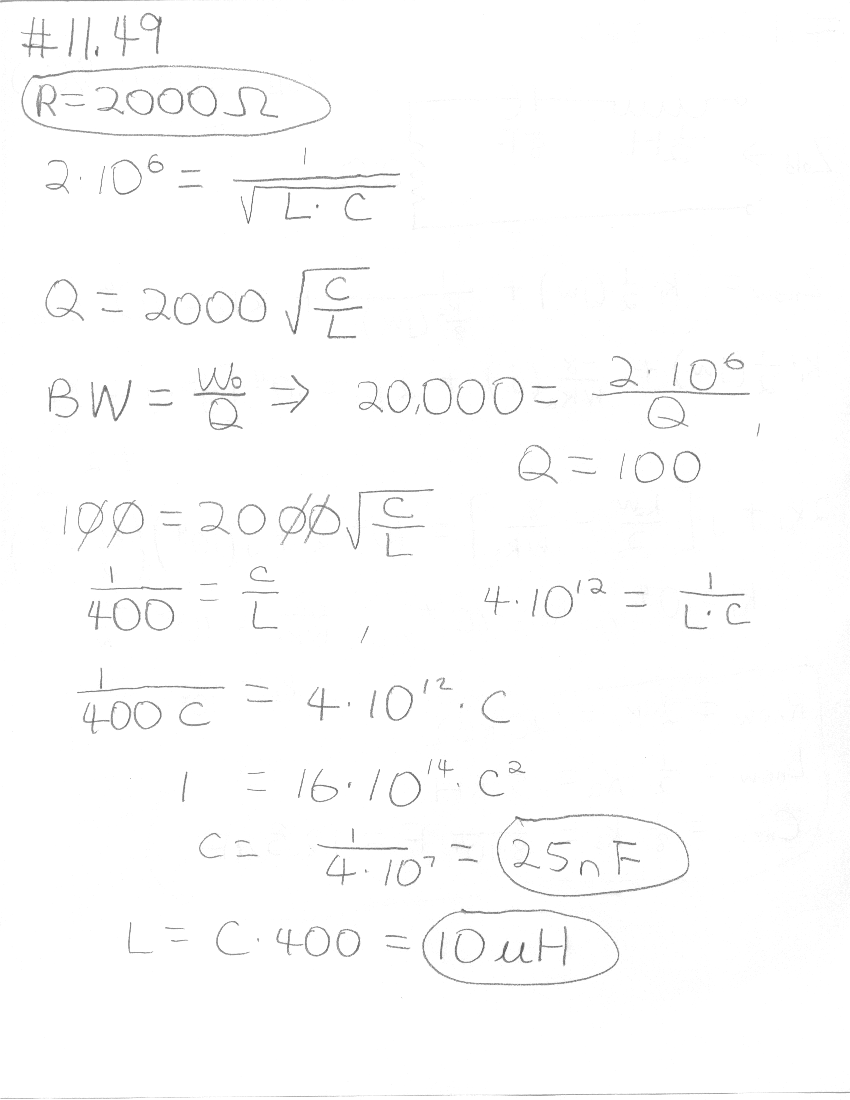 #11.49
R=2000Ω
2·10⁶ = 1/√(L·C)
Q = 2000 √(C/L)
BW = W₀/Q ⇒ 20,000 = 2·10⁶/Q ,
Q = 100
100 = 2000 √(C/L)
1/400 = C/L , 4·10¹² = 1/(L·C)
1/(400 C) = 4·10¹²·C
1 = 16·10¹⁴·C²
C = 1/(4·10⁷) = 25nF
L = C·400 = 10 uH